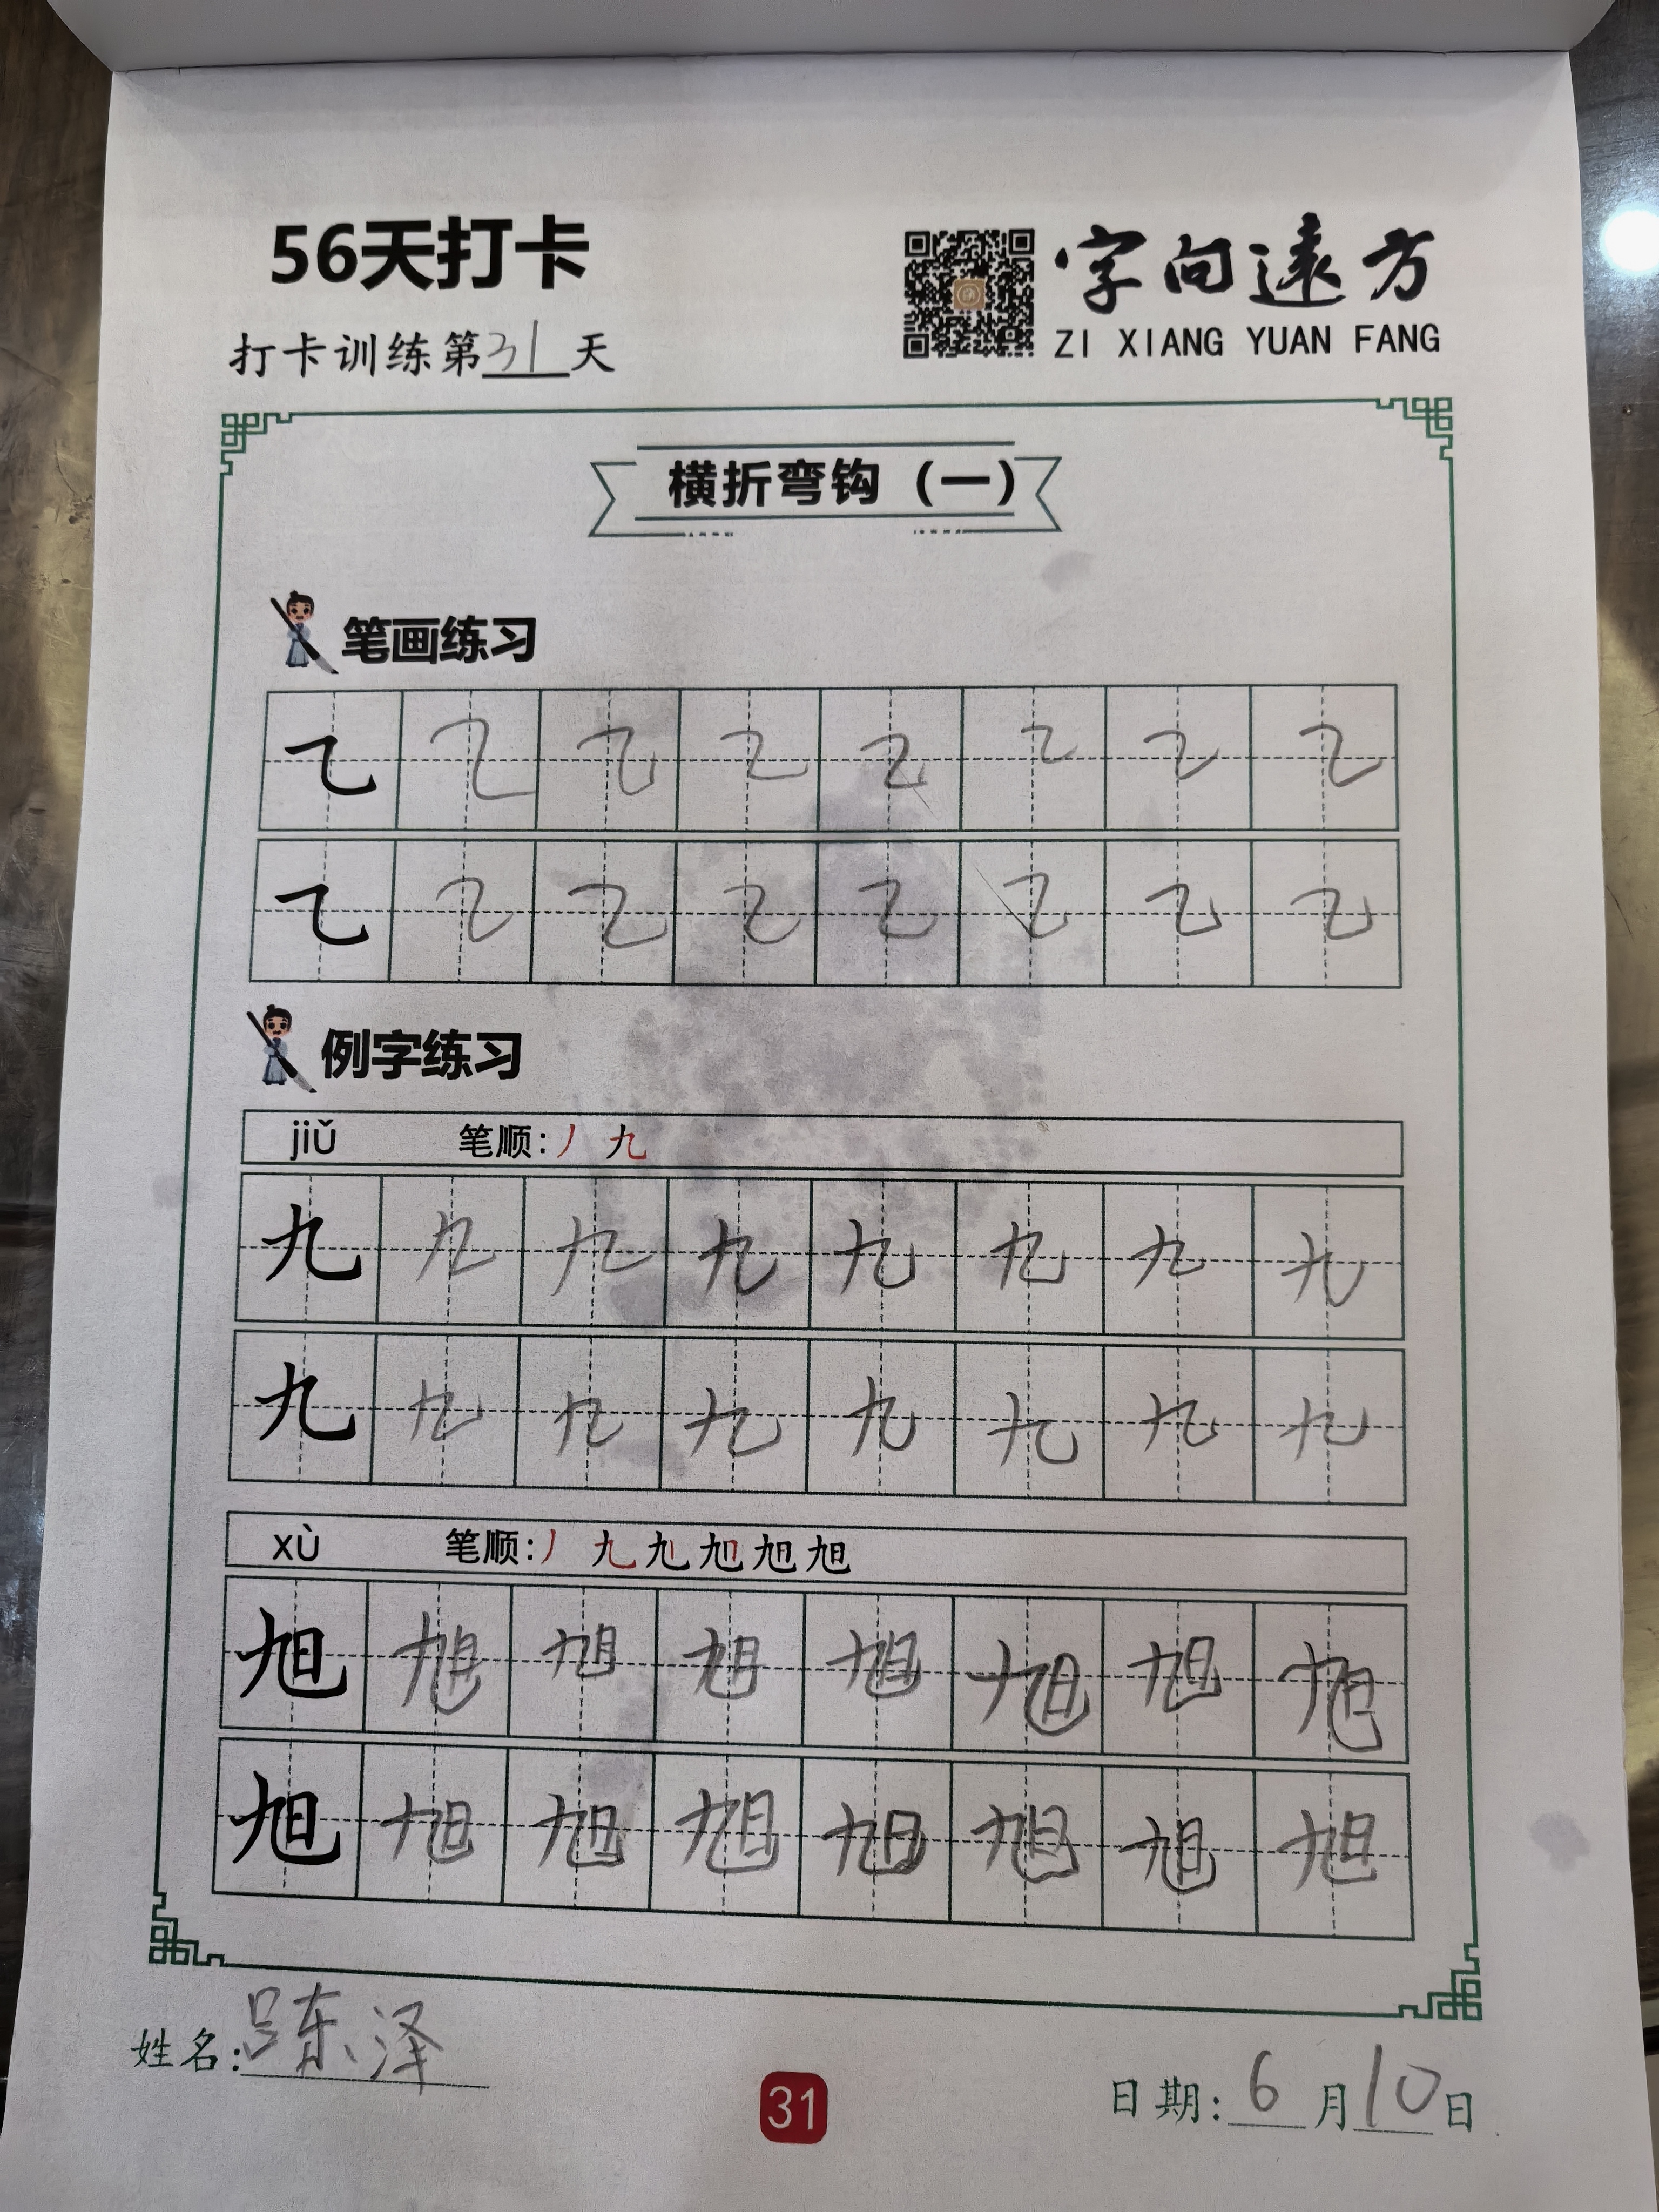 56天打卡
字向遠方
ZI XIANG YUAN FANG
打卡训练第31天
横折弯钩（一）
笔画练习
㇈ ㇈ ㇈ ㇈ ㇈ ㇈ ㇈ ㇈
㇈ ㇈ ㇈ ㇈ ㇈ ㇈ ㇈ ㇈
例字练习
jiǔ 笔顺：丿 九
九 九 九 九 九 九 九 九
九 九 九 九 九 九 九 九
xù 笔顺：丿 九 旭 旭 旭 旭
旭 旭 旭 旭 旭 旭 旭 旭
旭 旭 旭 旭 旭 旭 旭 旭
姓名：吕东泽
31
日期：6月10日